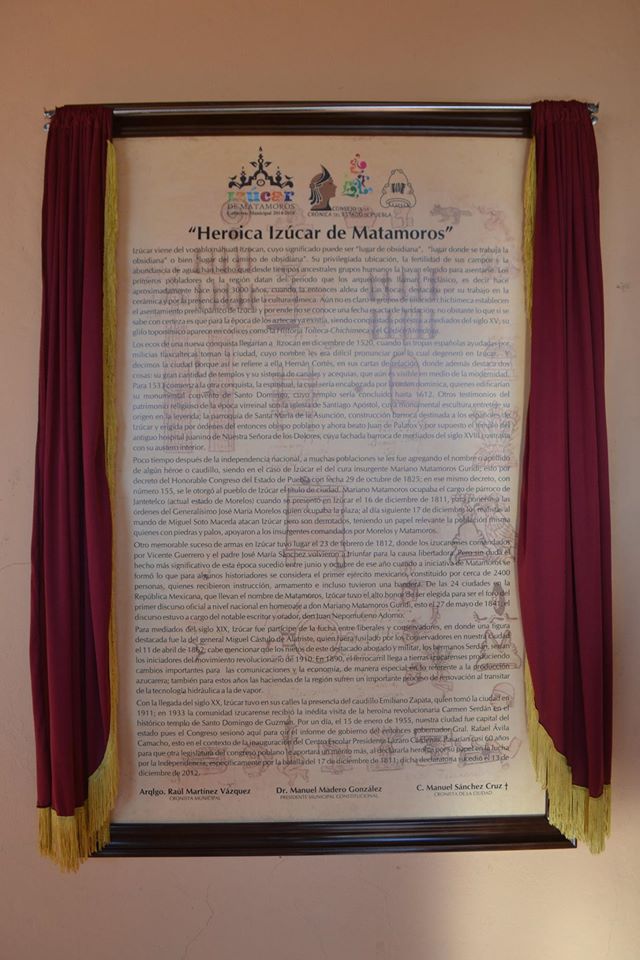 izúcar
DE MATAMOROS
Gobierno Municipal 2014-2018
CONSEJO DE LA
CRÓNICA DEL ESTADO DE PUEBLA
“Heroica Izúcar de Matamoros”
Izúcar viene del vocablo náhuatl Itzocan, cuyo significado puede ser “lugar de obsidiana”, “lugar donde se trabaja la
obsidiana” o bien de obsidiana”. Su privilegiada ubicación, la fertilidad de sus campos y la
abundancia de agua, han hecho que desde tiempos ancestrales grupos humanos la hayan elegido para asentarse. Los
primeros pobladores de la región datan del periodo que los arqueólogos llaman Preclásico, es decir hace
aproximadamente hace unos 3000 años, cuando la entonces aldea de Las Bocas, destacaba por su trabajo en la
cerámica y por la presencia de la cultura olmeca. Aún no es claro si grupos de filiación chichimeca establecieron
el asentamiento prehispánico de Izúcar y por ende no se conoce una fecha exacta de fundación; no obstante lo que sí se
sabe con certeza es que para la época de los aztecas ya existía, siendo conquistada por estos a mediados del siglo XV; su
glifo toponímico aparece en códices como la Historia Tolteca-Chichimeca y el Códice Mendocino.
Los ecos de una nueva conquista llegarían a Itzocan en diciembre de 1520, cuando las tropas españolas ayudadas por
milicias tlaxcaltecas toman la ciudad, cuyo nombre les era difícil pronunciar por lo cual degeneró en Izúcar. Y
decimos la ciudad porque así se refiere a ella Hernán Cortés, en sus cartas de relación, donde además destaca dos
cosas: su gran cantidad de templos y su sistema de canales y acequias, que aún es visible en medio de la modernidad.
Para 153 comienza la otra conquista, la espiritual, la cual sería encabezada por la orden dominica, quienes edificarían
su monumental convento de Santo Domingo, cuyo templo sería concluido hasta 1612. Otros testimonios del
patrimonio religioso de la época virreinal son la iglesia de Santiago Apóstol, cuya monumental escultura entreteje su
origen en la leyenda; la parroquia de Santa María de la Asunción, construcción barroca destinada a los españoles de
Izúcar y erigida por órdenes del entonces obispo poblano y ahora beato Juan de Palafox y por supuesto el templo del
antiguo hospital juanino de Nuestra Señora de los Dolores, cuya fachada barroca de mediados del siglo XVIII, contrasta
con su austero interior.
Poco tiempo después de la independencia nacional, a muchas poblaciones se les fue agregando el nombre o apellido
de algún héroe o caudillo, siendo en el caso de Izúcar el del cura insurgente Mariano Matamoros Guridi; esto por
decreto del Honorable Congreso del Estado de Puebla con fecha 29 de octubre de 1825; en ese mismo decreto, con
número 155, se le otorgó al pueblo de Izúcar el título de ciudad. Mariano Matamoros ocupaba el cargo de párroco de
Jantetelco (actual estado de Morelos) cuando se presentó en Izúcar el 16 de diciembre de 1811, para ponerse a las
órdenes del Generalísimo José María Morelos quien ocupaba la plaza; al día siguiente 17 de diciembre los realistas al
mando de Miguel Soto Maceda atacan Izúcar pero son derrotados, teniendo un papel relevante la población misma
quienes con piedras y palos, apoyaron a los insurgentes comandados por Morelos y Matamoros.
Otro memorable suceso de armas en Izúcar tuvo lugar el 23 de febrero de 1812, donde los izucarenses comandados
por Vicente Guerrero y el padre José María Sánchez volvieron a triunfar para la causa libertadora. Pero sin duda el
hecho más significativo de esta época sucedió entre junio y octubre de ese año cuando a iniciativa de Matamoros se
formó lo que para algunos historiadores se considera el primer ejército mexicano, constituido por cerca de 2400
personas, quienes recibieron instrucción, armamento e incluso tuvieron una bandera. De las 24 ciudades en la
República Mexicana, que llevan el nombre de Matamoros, Izúcar tuvo el alto honor de ser elegida para ser el foro del
primer discurso oficial a nivel nacional en homenaje a don Mariano Matamoros Guridi, esto el 27 de mayo de 184 el
discurso estuvo a cargo del notable escritor y orador, don Juan Nepomuceno Adorno.
Para mediados del siglo XIX, Izúcar fue partícipe de la lucha entre liberales y conservadores, en donde una figura
destacada fue la del general Miguel Cástulo de Alatriste, quien fuera fusilado por los conservadores en nuestra ciudad
el 11 de abril de 1862; cabe mencionar que los nietos de este destacado abogado y militar, los hermanos Serdán, serían
los iniciadores del movimiento revolucionario de 1910. En 1890, el ferrocarril llega a tierras izucarenses produciendo
cambios importantes para las comunicaciones y la economía, de manera especial en lo referente a la producción
azucarera; también para estos años las haciendas de la región sufren un importante proceso de renovación al transitar
de la tecnología hidráulica a la de vapor.
Con la llegada del siglo XX, Izúcar tuvo en sus calles la presencia del caudillo Emiliano Zapata, quien tomó la ciudad en
1911; en 1933 la comunidad izucarense recibió la inédita visita de la heroína revolucionaria Carmen Serdán en el
histórico templo de Santo Domingo de Guzmán. Por un día, el 15 de enero de 1955, nuestra ciudad fue capital del
estado pues el Congreso sesionó aquí para oír el informe de gobierno del entonces gobernador Gral. Rafael Ávila
Camacho, esto en el contexto de la inauguración del Centro Escolar Presidente Lázaro Cárdenas. Pasarían casi 60 años
para que otra legislatura del congreso poblano le aportará un mérito más, al declararla heroica por su papel en la lucha
por la Independencia, específicamente por la batalla del 17 de diciembre de 1811; dicha declaratoria sucedió el 13 de
diciembre de 2012.
Arqlgo. Raúl Martínez Vázquez
CRONISTA MUNICIPAL
Dr. Manuel Madero González
PRESIDENTE MUNICIPAL CONSTITUCIONAL
C. Manuel Sánchez Cruz †
CRONISTA DE LA CIUDAD